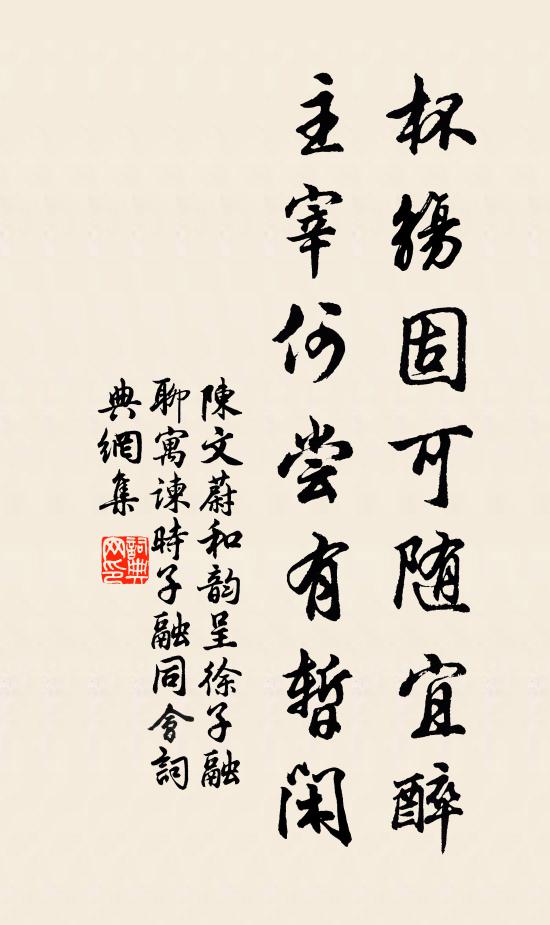 杯觴固可随宜醉
主宰何尝有暫闲
陳文蔚和韵呈徐子融
聊寓谏時子融同會詞
典網集
詞典網印